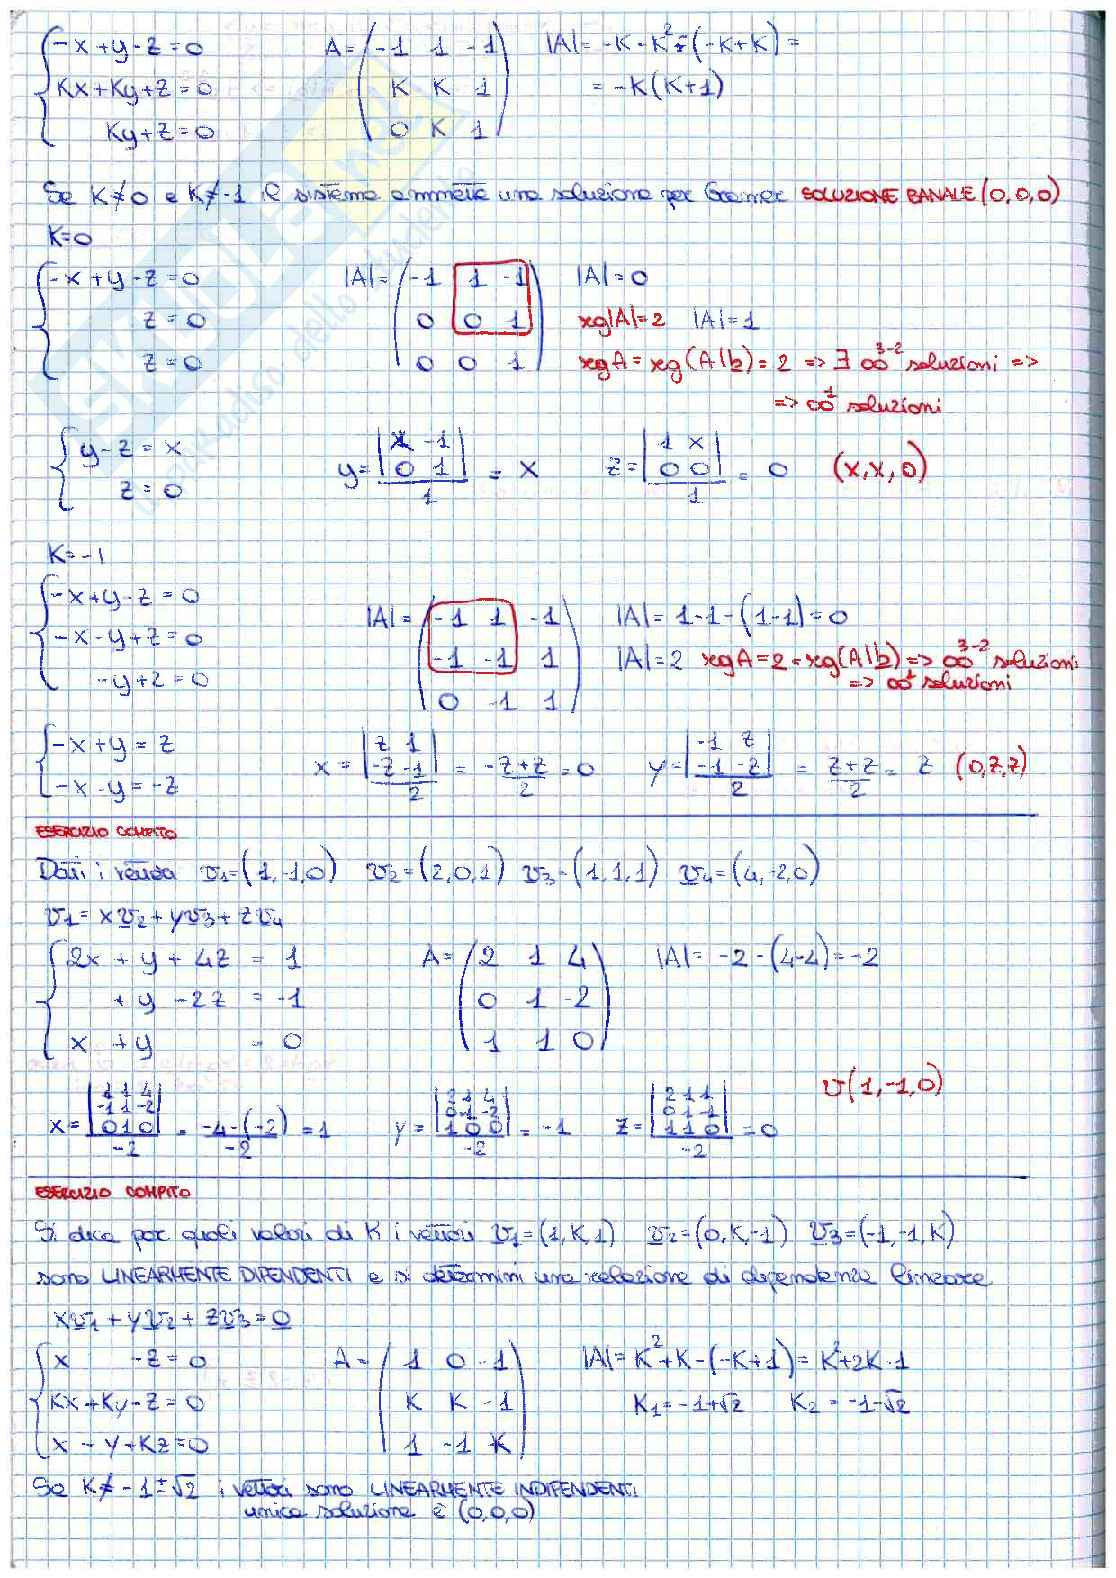 -x+y-z=0   A=(-1 1 -1)   |A|= -K-K²-(-K+K)=
Kx+Ky+z=0   K K 1   = -K(K+1)
Ky+z=0   0 K 1
Se K≠0 e K≠-1 il sistema ammette una soluzione per Cramer SOLUZIONE BANALE (0,0,0)
K=0
-x+y-z=0   |A|=(-1 1 -1)   |A|=0
z=0   0 0 1   rg|A|=2   |A|=1
z=0   0 0 1   rgA=rg(A|b)=2 => ∃ ∞³⁻² soluzioni =>
=> ∞¹ soluzioni
y-z=x   y= |x -1| |0 1| / 1 = x   z= |1 x| |0 0| / 1 = 0   (x,x,0)
z=0
K=-1
-x+y-z=0   |A|=(-1 1 -1)   |A|=1-1-(1-1)=0
-x-y+z=0   -1 -1 1   |A|=2   rgA=2=rg(A|b) => ∞³⁻² soluzioni
-y+z=0   0 -1 1   => ∞¹ soluzioni
-x+y=z   x= |z 1| |-z -1| / 2 = -z+z / 2 = 0   y= |-1 z| |-1 -z| / 2 = z+z / 2 = z   (0,z,z)
-x-y=-z
ESERCIZIO COMPITO
Dati i vettori v1=(1,-1,0)   v2=(2,0,1)   v3=(1,1,1)   v4=(4,-2,0)
v1=xv2+yv3+zv4
2x+y+4z=1   A=(2 1 4)   |A|= -2-(4-4)=-2
+y-2z=-1   0 1 -2
x+y=0   1 1 0
x= |1 1 4| |-1 1 -2| |0 1 0| / -2 = -4-(-2) / -2 = 1   y= |2 1 4| |0 -1 -2| |1 0 0| / -2 = -1   z= |2 1 1| |0 1 -1| |1 1 0| / -2 = 0   v(1,-1,0)
ESERCIZIO COMPITO
Si dica per quali valori di K i vettori v1=(1,K,1)   v2=(0,K,-1)   v3=(-1,-1,K)
sono LINEARMENTE DIPENDENTI e si determini una relazione di dipendenza lineare
xv1+yv2+zv3=0
x -z=0   A=(1 0 -1)   |A|=K²+K-(-K+1)=K²+2K-1
Kx+Ky-z=0   K K -1   K1=-1+√2   K2=-1-√2
x-y+Kz=0   1 -1 K
Se K≠-1±√2 i vettori sono LINEARMENTE INDIPENDENTI
unica soluzione è (0,0,0)